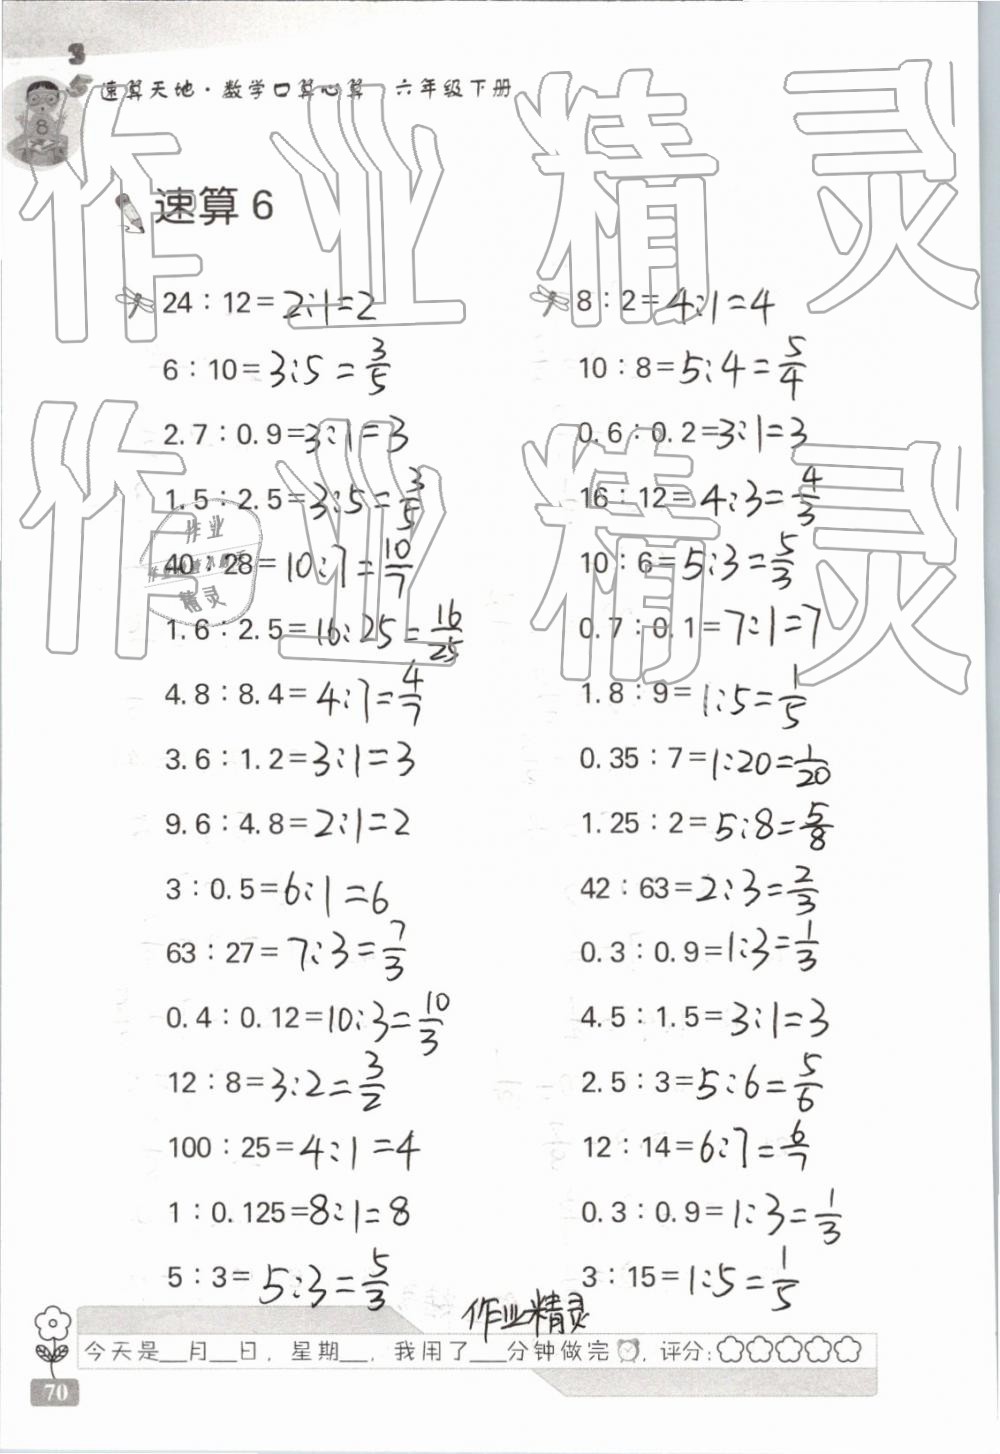 速算天地·数学口算心算 六年级下册
8
速算 6
24：12=2:1=2
8：2=4:1=4
6：10=3:5=3/5
10：8=5:4=5/4
2.7：0.9=3:1=3
0.6：0.2=3:1=3
1.5：2.5=3:5=3/5
16：12=4:3=4/3
40：28=10:7=10/7
10：6=5:3=5/3
1.6：2.5=16:25=16/25
0.7：0.1=7:1=7
4.8：8.4=4:7=4/7
1.8：9=1:5=1/5
3.6：1.2=3:1=3
0.35：7=1:20=1/20
9.6：4.8=2:1=2
1.25：2=5:8=5/8
3：0.5=6:1=6
42：63=2:3=2/3
63：27=7:3=7/3
0.3：0.9=1:3=1/3
0.4：0.12=10:3=10/3
4.5：1.5=3:1=3
12：8=3:2=3/2
2.5：3=5:6=5/6
100：25=4:1=4
12：14=6:7=6/7
1：0.125=8:1=8
0.3：0.9=1:3=1/3
5：3=5:3=5/3
3：15=1:5=1/5
作业精灵
今天是__月__日，星期__，我用了___分钟做完，评分：
70
作业精灵
作业精灵
作业
精灵